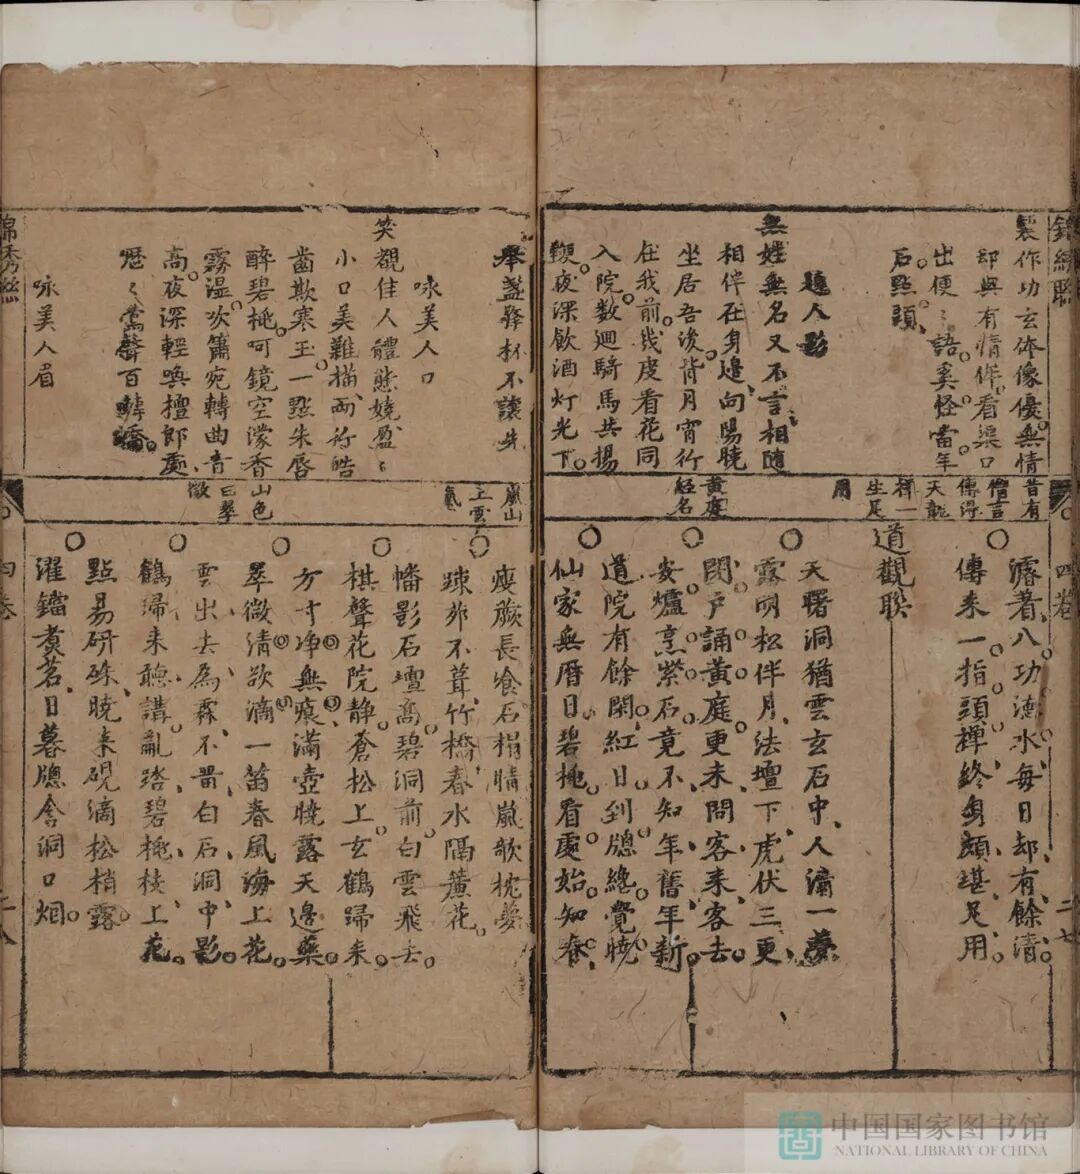 錦繡聯
四卷
二七
製作功玄俢像優。無情
却與有情作。看渠口
出便〻語。奚怪當年
石點頭。
題人影
無姓無名又不言。相隨
相伴在身邊、向陽曉
坐居吾後。背月宵行
在我前。幾度看花同
入院。数廻騎馬共揚
鞭。夜深飲酒灯光下。
昔有
僧言
傳得
天龍
禅一
生足
用
黄庭
經名
濬着八功德水每日却有餘清
傳来一指頭禅終身頗堪足用
道觀聯
天曙洞猶雲玄石中人清一夢
露明松伴月法壇下虎伏三更
閉户誦黄庭更来問客来客去
安爐烹紫石竟不知年舊年新
道院有餘閑紅日到牕總覺曉
仙家無曆日碧桃看處始知春
舉盞擎杯不讓先
咏美人口
笑覩佳人體態嬈。盈〻
小口美難描。兩行皓
齒欺寒玉。一點朱唇
醉碧桃。呵鏡空濛香
霧湿。吹簫宛轉曲音
高。夜深輕喚檀郎處、
嚦〻鶯聲百囀嬌。
咏美人眉
嵐山
上雲
氣
山色
曰翠
微
瘦蕨長飡石榻晴嵐歌枕夢
疎茆不葺竹橋春水隔簷花
幡影石壇高碧洞前白雲飛去
棋聲花院静蒼松上玄鶴歸来
方寸净無痕滿壺曉露天邊藥
翠微清欲滴一笛春風海上花
雲出去為霖不畱白石洞中影
鶴歸来聽講亂踏碧桃枝上花
點易研硃曉来硯滴松梢露
濯鐺煑茗日暮牕含洞口烟
錦秀聯
四卷
二八
中国国家图书馆
NATIONAL LIBRARY OF CHINA